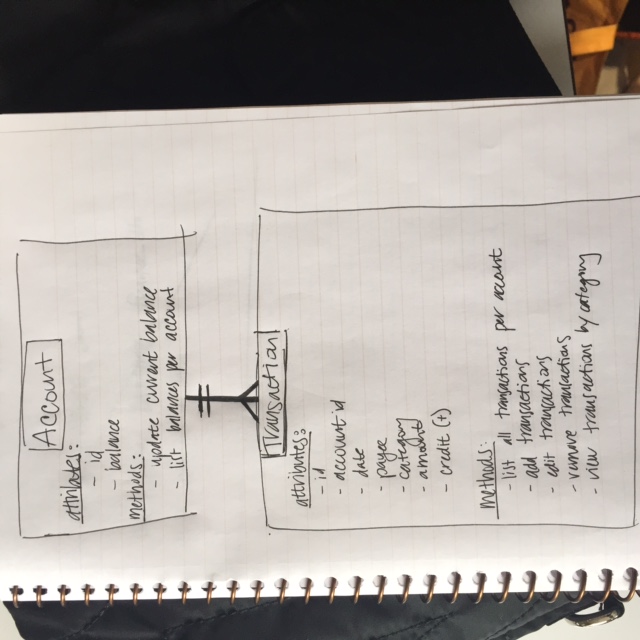 Account
attributes:
- id
- balance
methods:
- update current balance
- list balances per account
Transaction
attributes:
- id
- account id
- date
- payee
- category
- amount
- credit (+)
methods:
- list all transactions per account
- add transactions
- edit transactions
- remove transactions
- view transactions by category